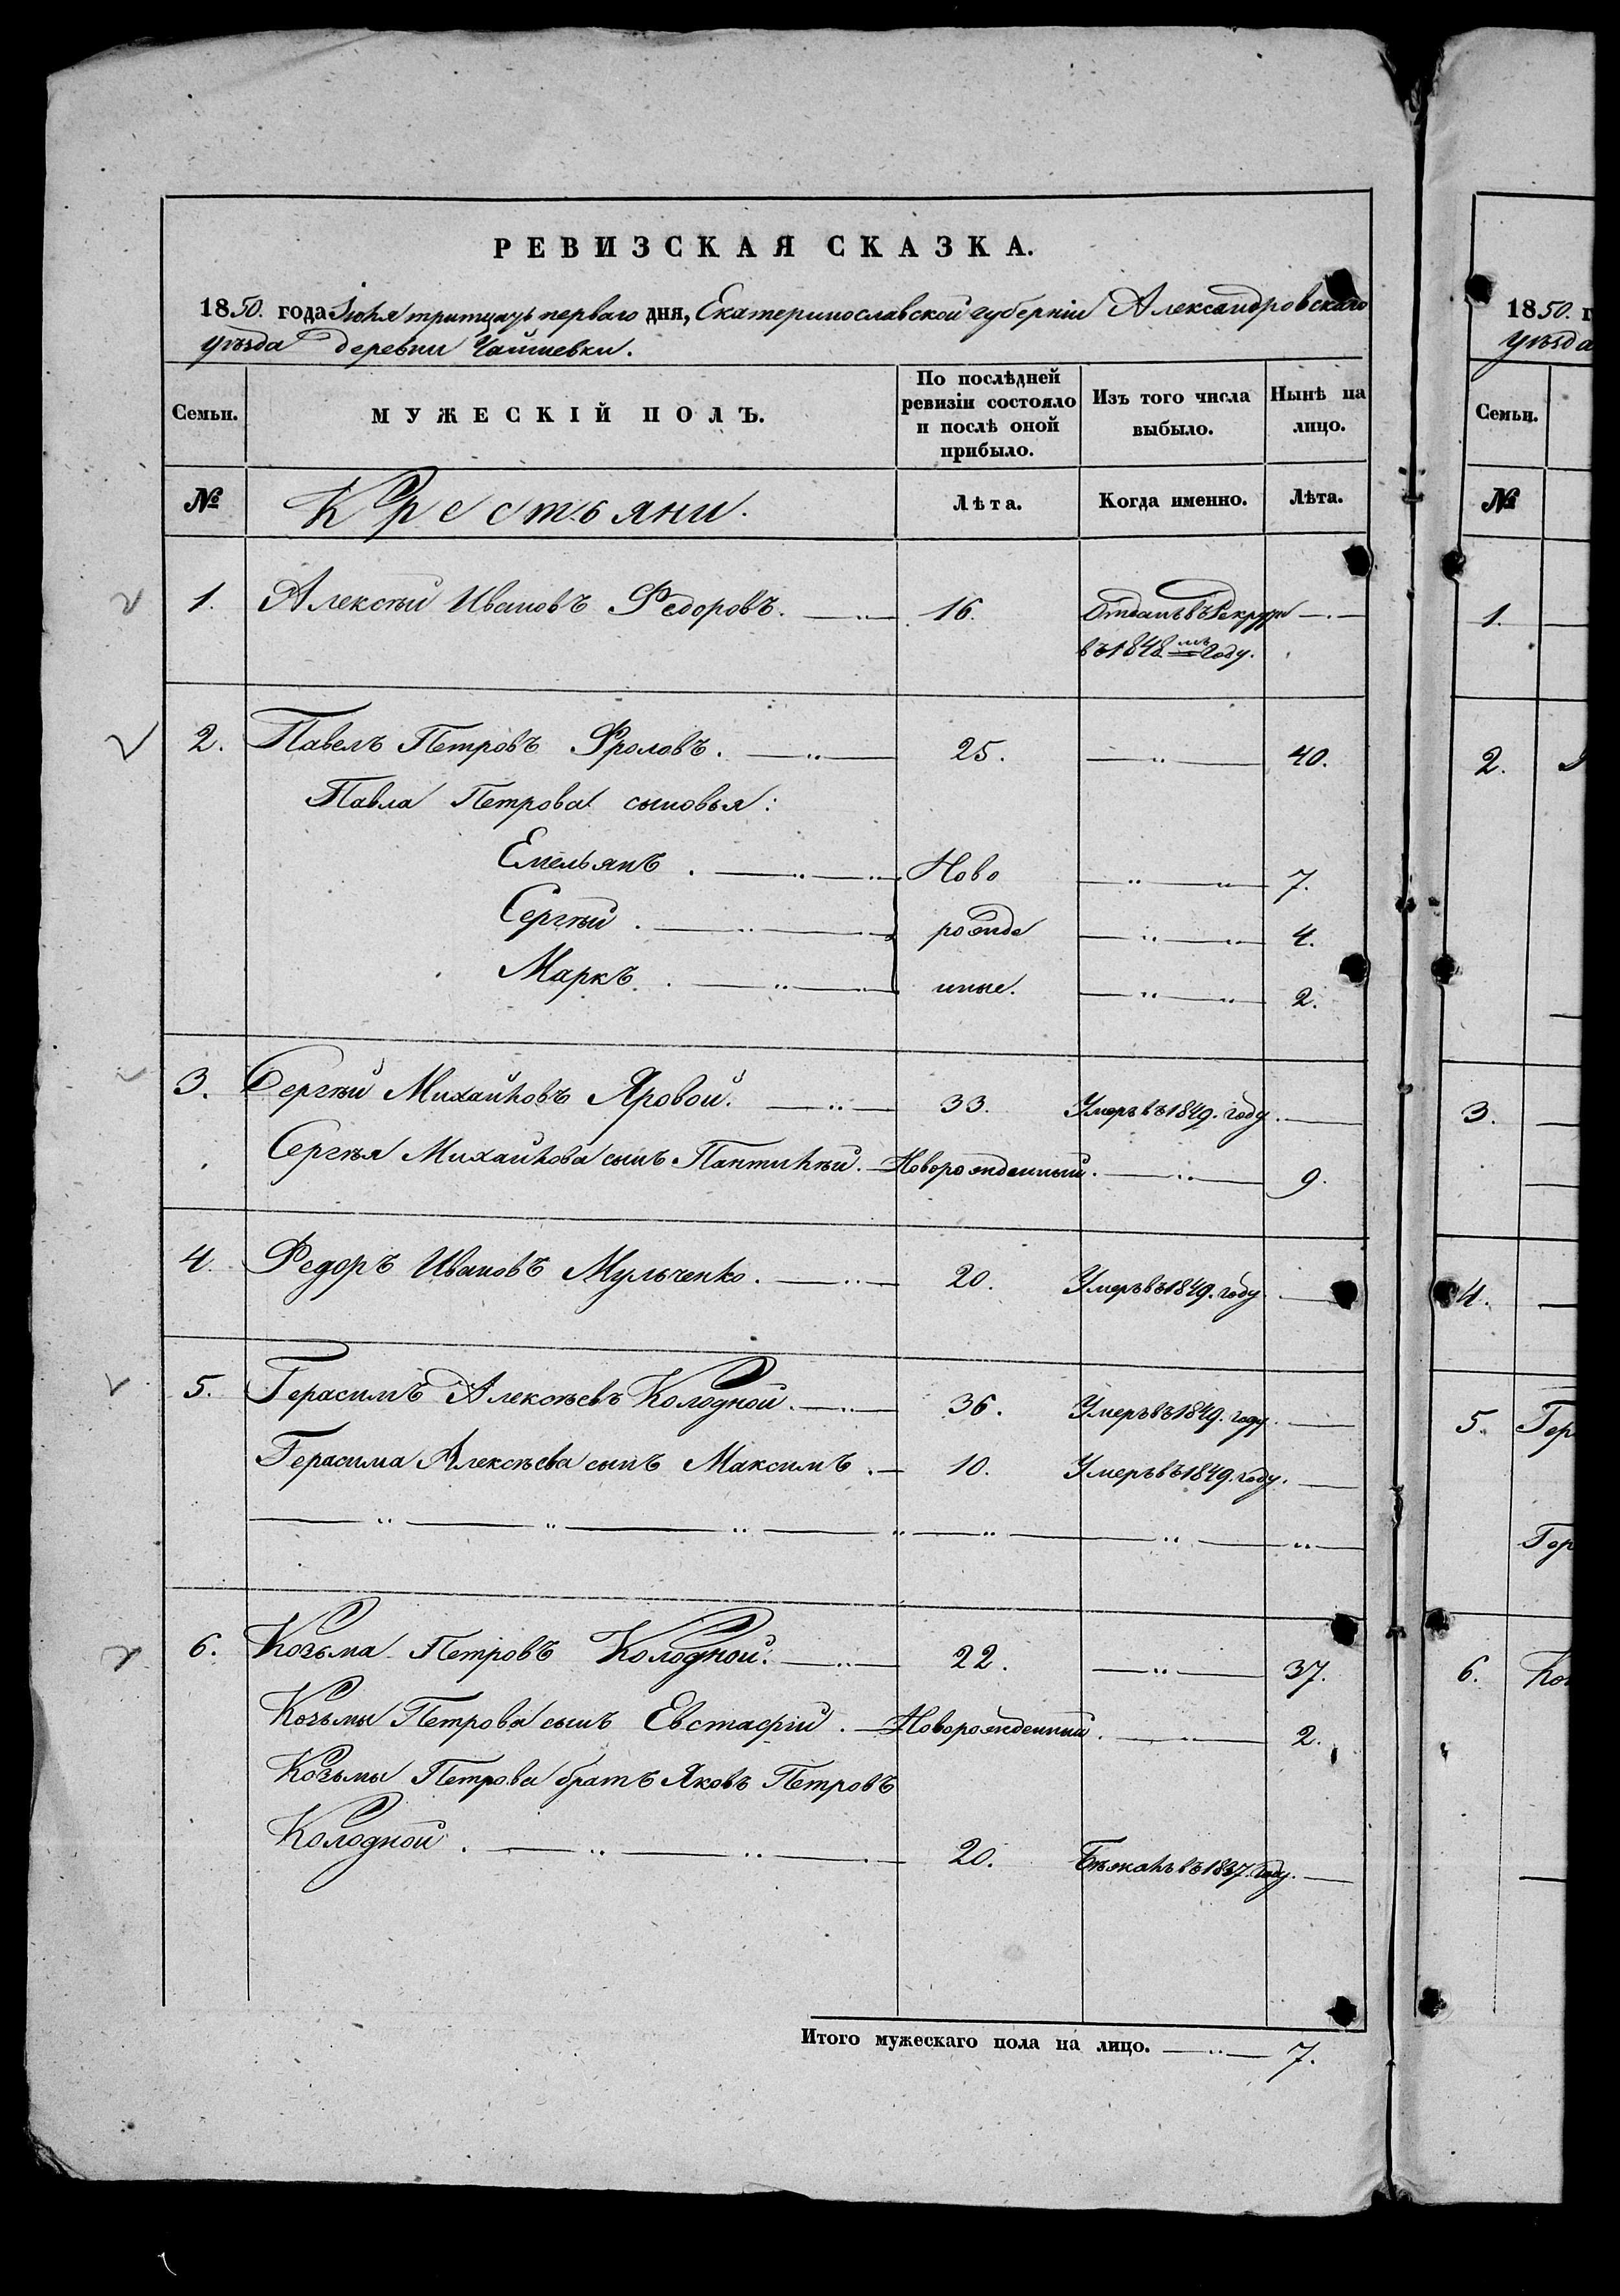 РЕВИЗСКАЯ СКАЗКА.
1850. года Іюля тритцать перваго дня, Екатеринославской губерніи Александровскаго
уѣзда деревни
Семьи. МУЖЕСКІЙ ПОЛЪ. По послѣдней ревизіи состояло и послѣ оной прибыло. Изъ того числа выбыло. Нынѣ на лицо.
№ Крестьяни. Лѣта. Когда именно. Лѣта.
1. Алексѣй Ивановъ Федоровъ. 16. Отданъ въ Рекруты
въ 1848мъ году.
2. Павелъ Петровъ Фроловъ. 25. 40.
Павла Петрова сыновья:
Емельянъ. Ново 7.
Сергѣй. рожде 4.
Маркъ. нные. 2.
3. Сергѣй Михайловъ Яровой. 33. Умеръ въ 1849. году.
Сергѣя Михайлова сынъ Пантилѣй. Новорожденный. 9.
4. Федоръ Ивановъ Мульченко. 20. Умеръ въ 1849. году.
5. Герасимъ Алексѣевъ Колодной. 36. Умеръ въ 1849. году.
Герасима Алексѣева сынъ Максимъ. 10. Умеръ въ 1849. году.
6. Козьма Петровъ Колодной. 22. 37.
Козьмы Петрова сынъ Евстафій. Новорожденный. 2.
Козьмы Петрова братъ Яковъ Петровъ
Колодной. 20. Бѣжалъ въ 1837. году.
Итого мужескаго пола на лицо. 7.
1850. г
уѣзда
Семьи.
№
1.
2.
3.
4.
5. Гер
Гер
6. Коз